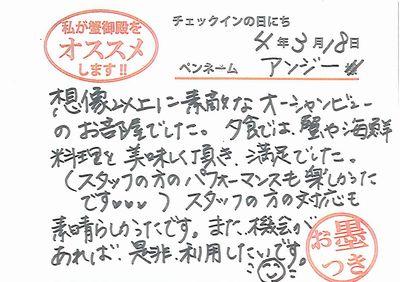 私が蟹御殿を
オススメ
します!!
チェックインの日にち
4年3月18日
ペンネーム アンジー
想像以上に素敵なオーシャンビュー
のお部屋でした。夕食では、蟹や海鮮
料理を美味しく頂き、満足でした。
(スタッフの方のパフォーマンスも楽しかった
です♡♡♡) スタッフの方の対応も
素晴らしかったです。また、機会が
あれば、是非、利用したいです。
お墨
つき